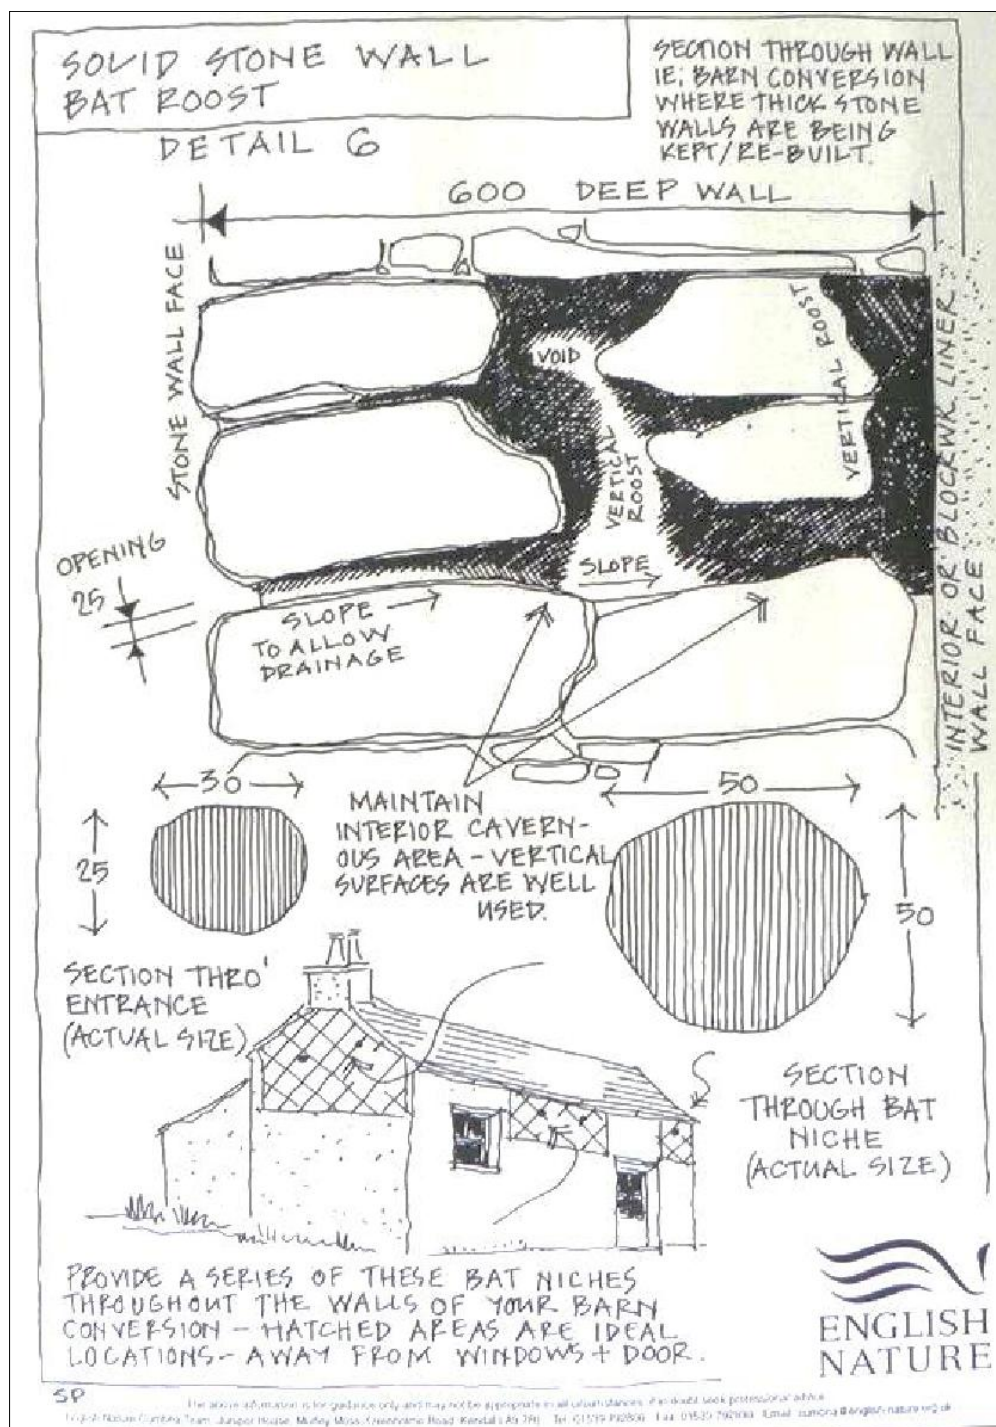 SOLID STONE WALL
BAT ROOST
DETAIL 6
SECTION THROUGH WALL
IE; BARN CONVERSION
WHERE THICK STONE
WALLS ARE BEING
KEPT/RE-BUILT.
600 DEEP WALL
STONE WALL FACE
VOID
VERTICAL ROOST
VERTICAL
ROOST
INTERIOR OR BLOCKWK. LINER
WALL FACE
OPENING
25
SLOPE
SLOPE
TO ALLOW
DRAINAGE
30
25
MAINTAIN
INTERIOR CAVERN-
OUS AREA - VERTICAL
SURFACES ARE WELL
USED.
50
50
SECTION THRO'
ENTRANCE
(ACTUAL SIZE)
SECTION
THROUGH BAT
NICHE
(ACTUAL SIZE)
PROVIDE A SERIES OF THESE BAT NICHES
THROUGHOUT THE WALLS OF YOUR BARN
CONVERSION - HATCHED AREAS ARE IDEAL
LOCATIONS - AWAY FROM WINDOWS + DOOR.
ENGLISH
NATURE
SP
The above information is for guidance only and may not be appropriate in all circumstances. If in doubt seek professional advice.
English Nature Cumbria Team, Juniper House, Murley Moss, Oxenholme Road, Kendal LA9 7RL Tel: 01539 792800 Fax: 01539 Email: cumbria@english-nature.org.uk